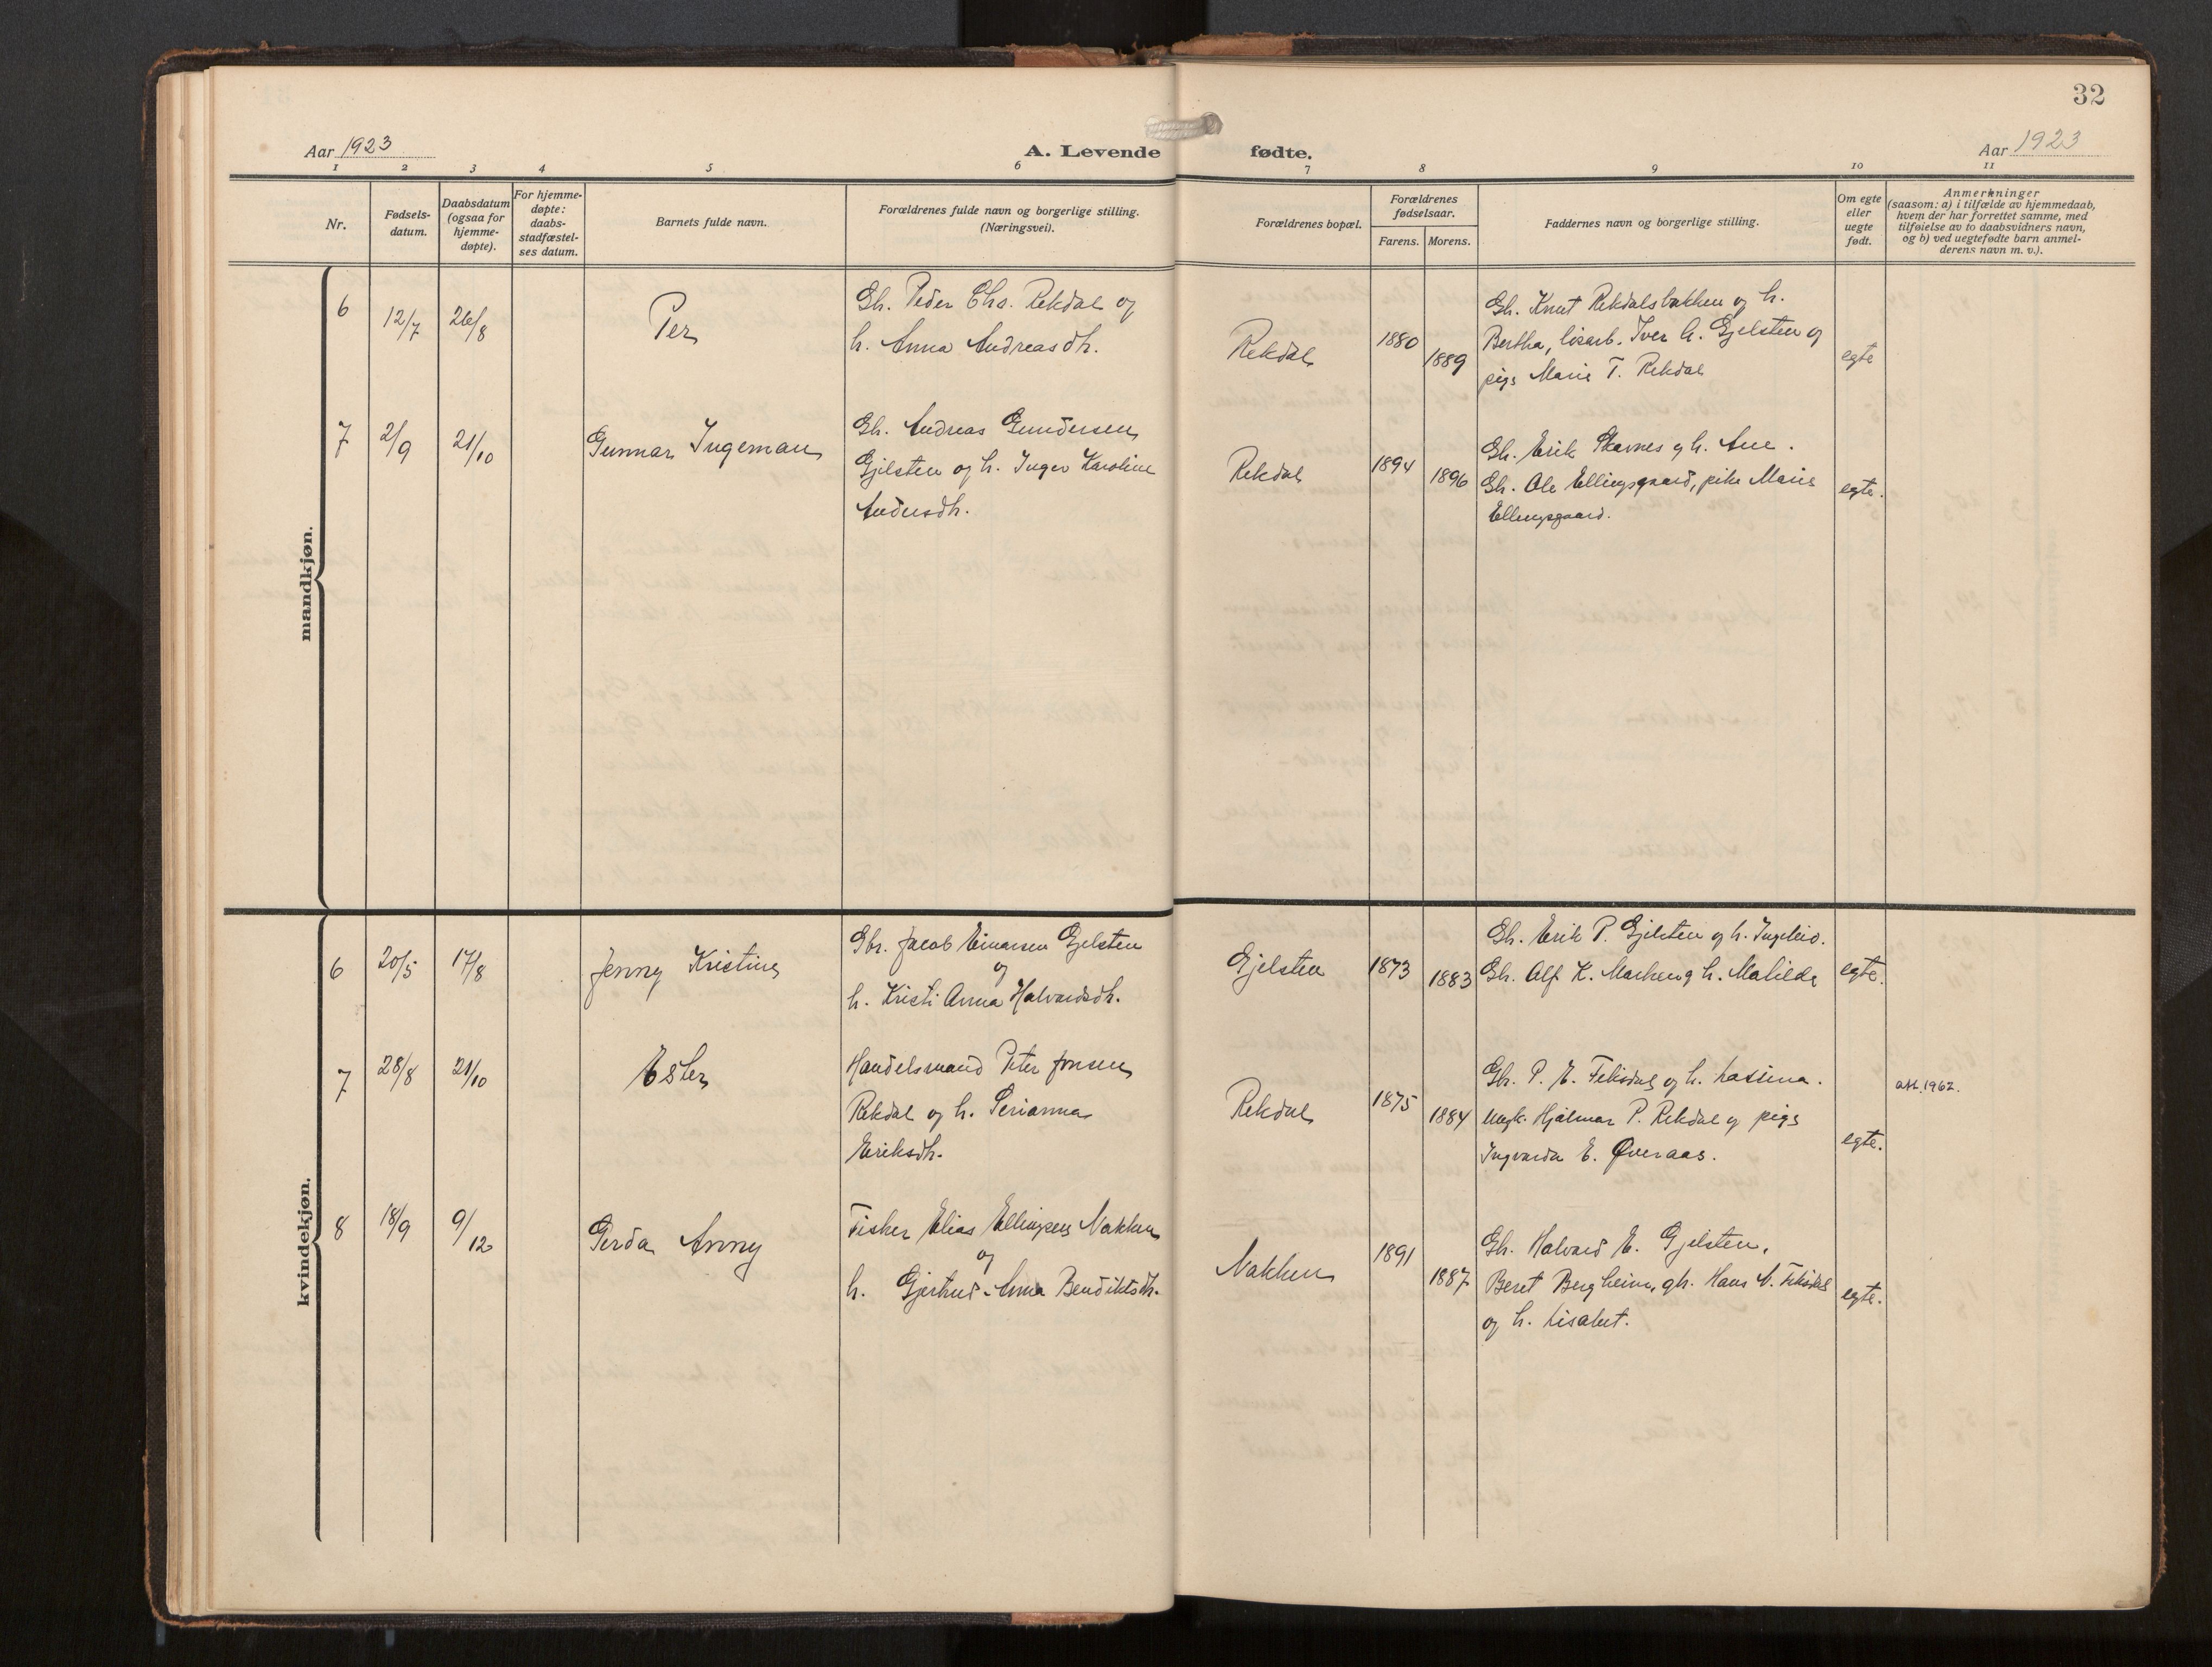 32
Aar 1923
A. Levende
fødte.
Aar 1923
1 2 3 4 5 6 7 8 9 10 11
Nr.
Fødsels-
datum.
Daabsdatum
(ogsaa for
hjemme-
døpte).
For hjemme-
døpte:
daabs-
stadfæstel-
ses datum.
Barnets fulde navn.
Forældrenes fulde navn og borgerlige stilling.
(Næringsvei).
Forældrenes bopæl.
Forældrenes
fødselsaar.
Farens. Morens.
Faddernes navn og borgerlige stilling.
Om egte
eller
uegte
født.
Anmerkninger
(saasom: a) i tilfælde av hjemmedaab,
hvem der har forrettet samme, med
tilføielse av to daabsvidners navn,
og b) ved uegtefødte barn anmel-
derens navn m. v.).
mandkjøn.
6
12/7
26/8
Per
Gh. Peder Chs. Rekdal og
h. Anna Andreasdh.
Rekdal
1880
1889
Gh. Knut Rekdalsbakken og h.
Bertha, løsarb. Iver A. Gjelsten og
pige Marie T. Rekdal
egte
7
2/9
21/10
Gunnar Ingeman
Gh. Andreas Gundersen
Gjelsten og h. Inger Karoline
Andersdh.
Rekdal
1894
1896
Gh. Erik Skarnes og h. Ane.
Gh. Ole Ellingsgaard, pike Marie
Ellingsgaard.
egte.
kvindekjøn.
6
20/5
17/8
Jenny Kristine
Gbr. Jacob Einarsen Gjelsten
og
h. Kristi Anna Halvardsdh.
Gjelsten
1873
1883
Gh. Erik P. Gjelsten og h. Ingeleid.
Gh. Alf K. Marken og h. Matilde
egte.
7
28/8
21/10
Ester
Handelsmand Peter Jonsen
Rekdal og h. Serianna
Eriksdh.
Rekdal
1875
1884
Gh. P. E. Fiksdal og h. Lassina.
Ungk. Hjalmar P. Rekdal og pige
Ingvarda E. Øveraas.
egte.
att. 1962.
8
18/9
9/12
Gerda Anny
Fisker Elias Ellingsen Nakken
og
h. Gjertrud-Anna Bendiktsdh.
Nakken
1891
1887
Gh. Halvard E. Gjelsten,
Beret Bergheim, gh. Hans A. Fiksdal
og h. Lisabet.
egte.